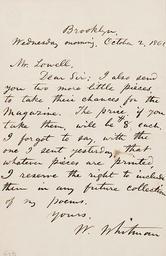 Brooklyn,
Wednesday morning, October 2, 1861
Mr. Lowell,
Dear Sir; I also send
you two more little pieces,
to take their chances for the
Magazine. The price, if you
take them, will be $8 each.
I forgot to say, with the
one I sent yesterday, that
whatever pieces are printed
I reserve the right to include
them in any future collection
of my poems.
Yours,
W. Whitman